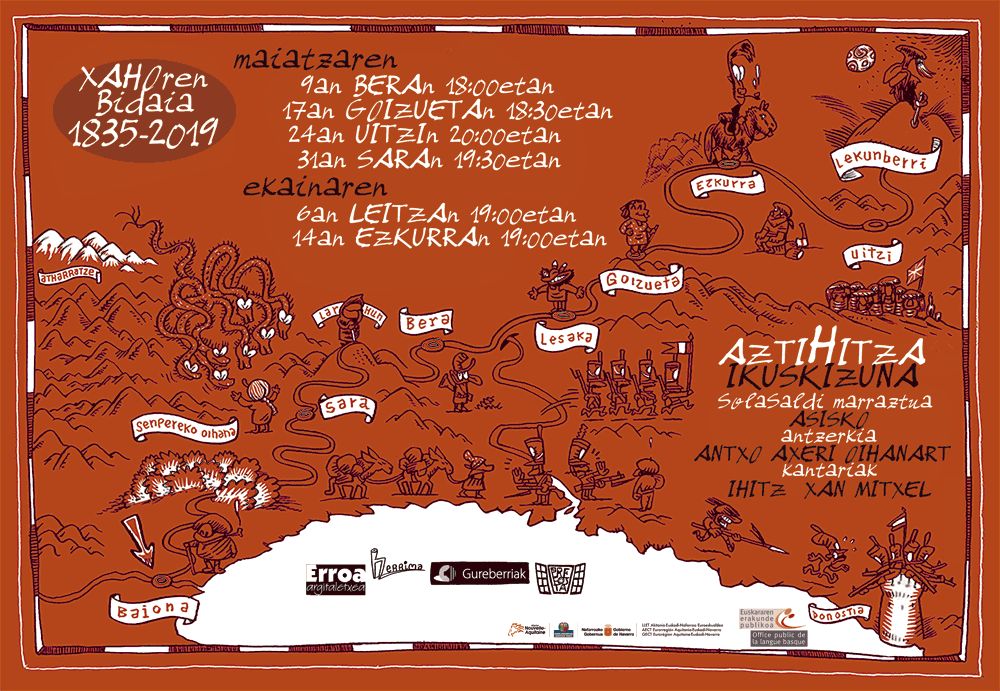 XAHOren
Bidaia
1835-2019
maiatzaren
9an BERAn 18:00etan
17an GOIZUETAn 18:30etan
24an UITZIn 20:00etan
31an SARAn 19:30etan
ekainaren
6an LEITZAn 19:00etan
14an EZKURRAn 19:00etan
Lekunberri
Ezkurra
uitzi
atharratze
Goizueta
Larhun
Bera
Lesaka
sara
senpereko oihana
AZTIHITZA
IKUSKIZUNA
Solasaldi marraztua
ASISKO
antzerkia
ANTXO AXERI OIHANART
kantariak
IHITZ XAN MITXEL
Baiona
Donostia
Erroa
argitaletxea
Herrima
Gureberriak
Nouvelle-
Aquitaine
Nafarroako
Gobernua
Gobierno
de Navarra
Euskararen
erakunde
publikoa
Office public de
la langue basque